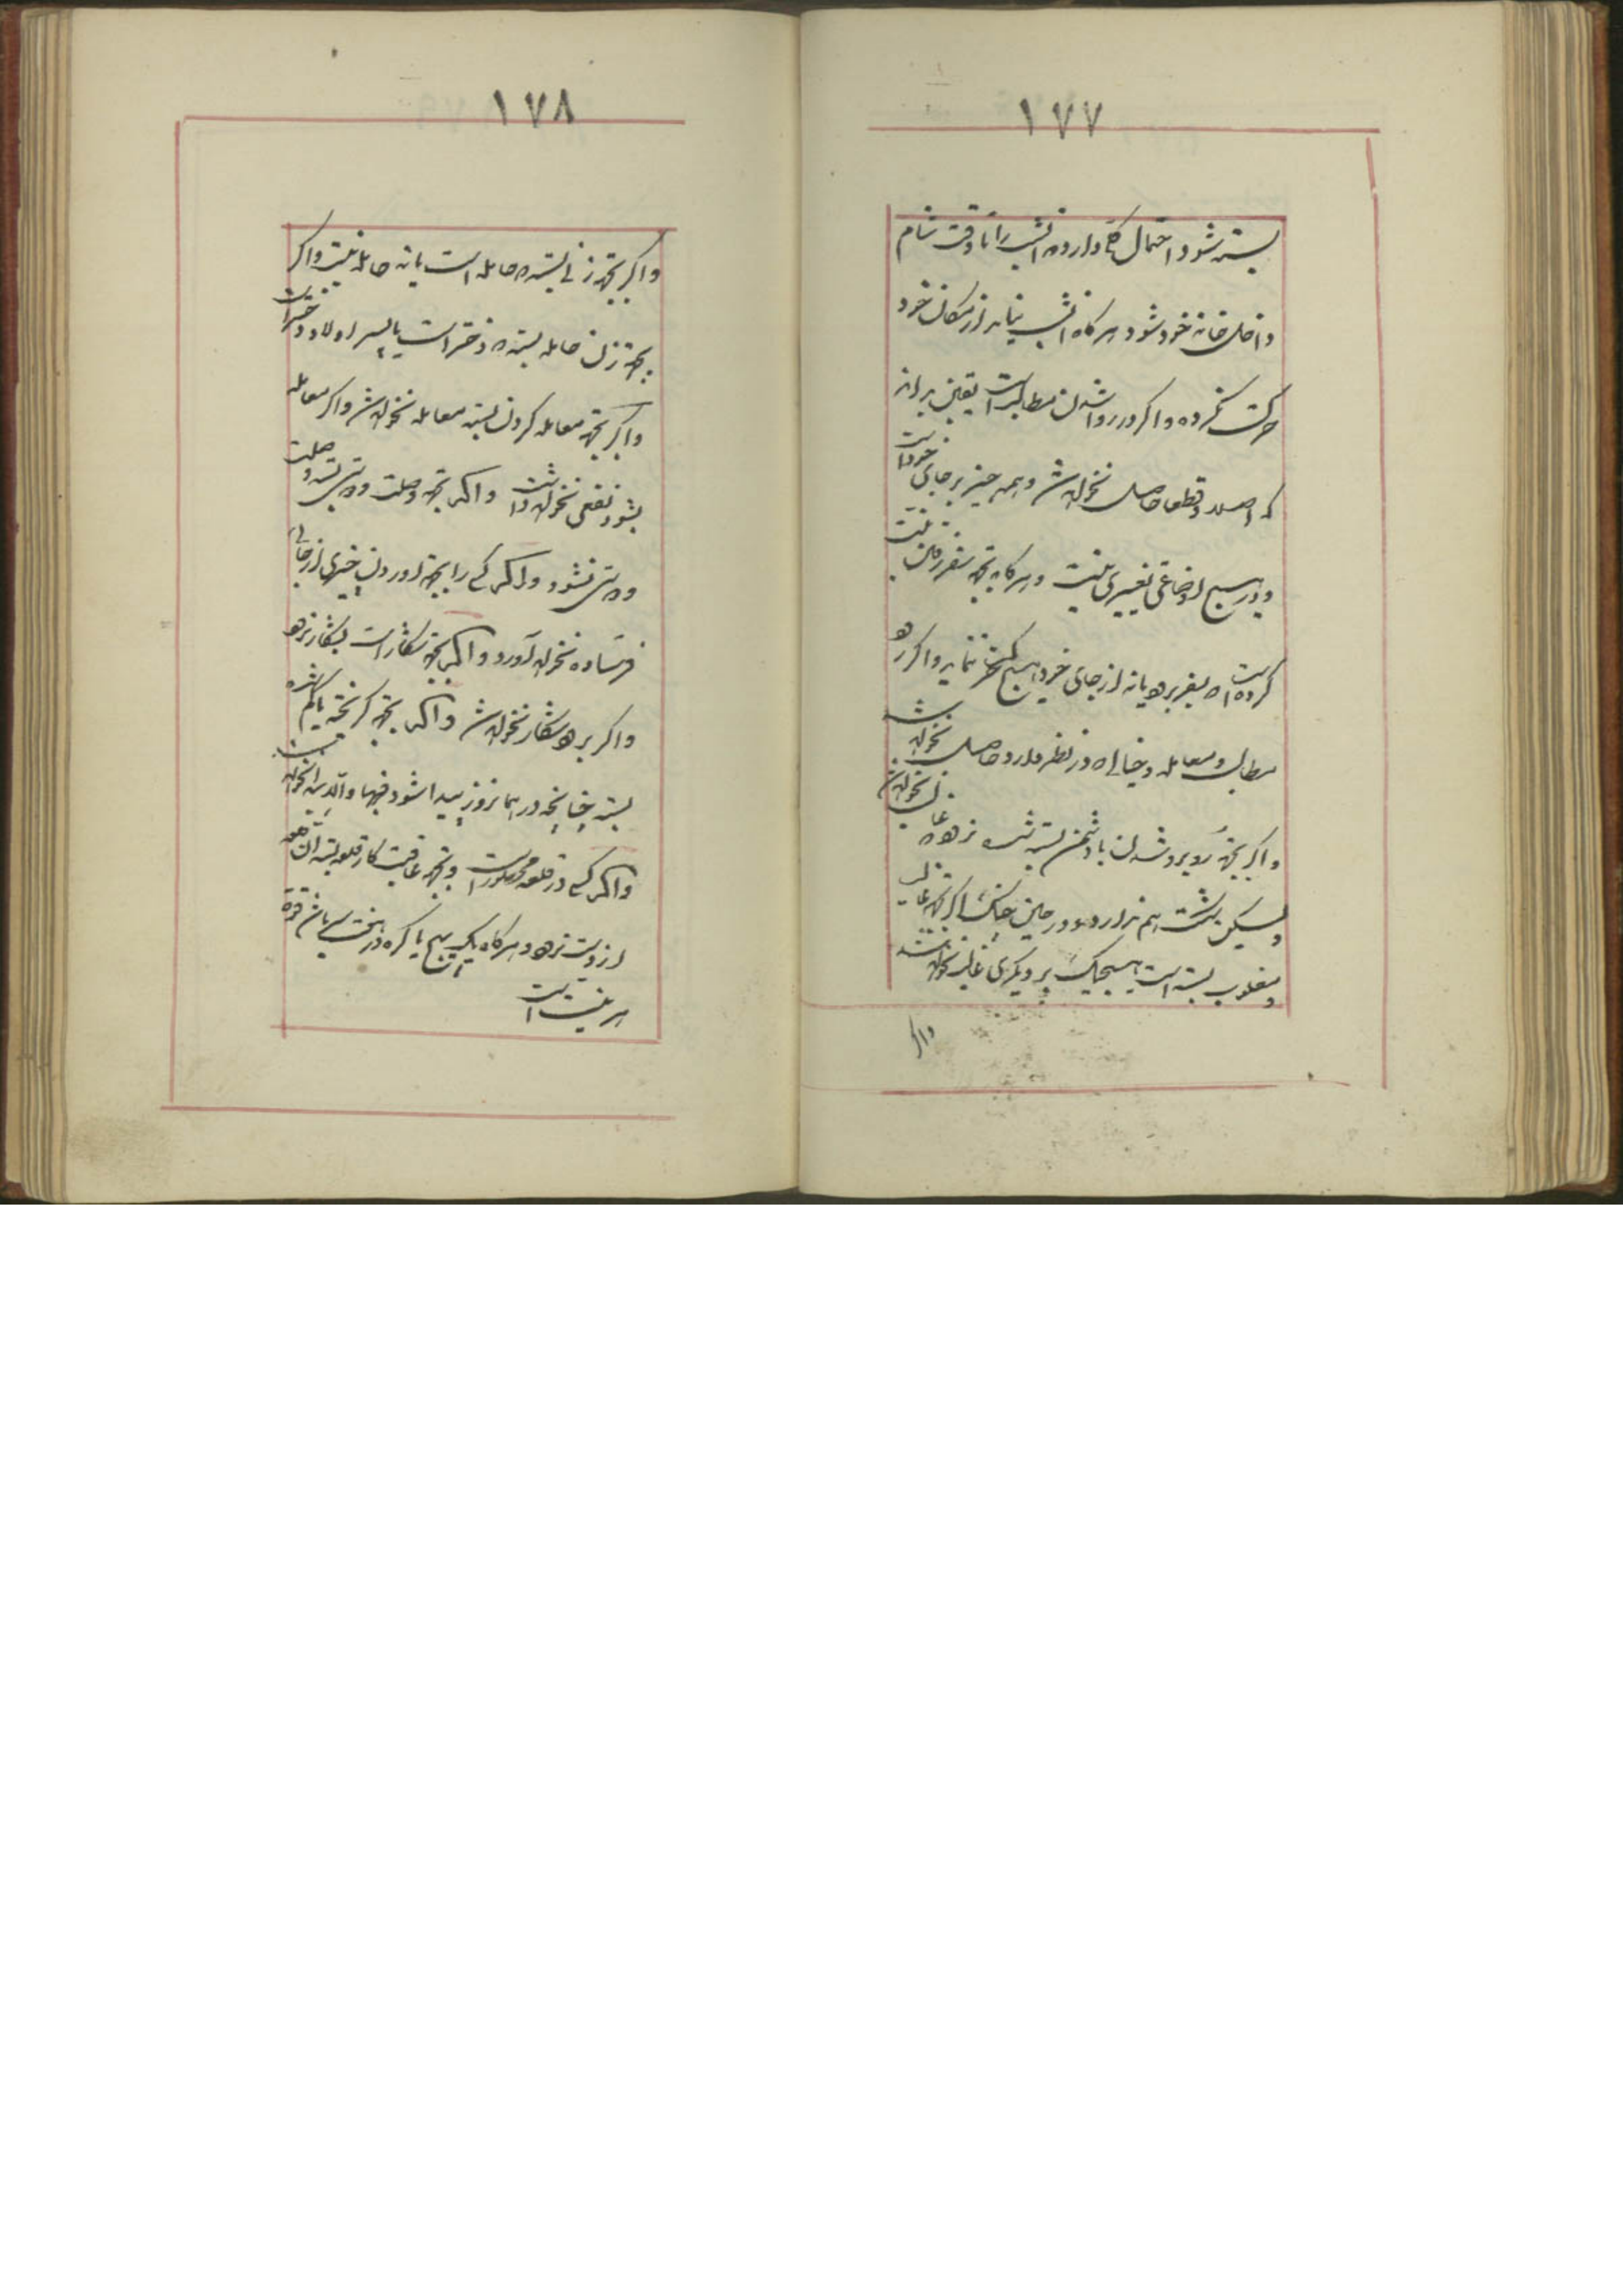 ۱۷۷
بسته شود احتمال کلی دارد که انشب را تا وقت شام
داخل خانه خود شود و هرکاه انشب نیاید از مکان خود
حرکت نکرده و اکر در روا شدن مطالب است یقین بداند
که اصلا و قطعا حاصل نخواهد شد و همه چیز بر جای خود است
و در هیچ اوضاعی تغییری نیست و هرکاه بجهة سفر رفتن نیت
کرده است که بسفر برود یا نه از جای خود هیچ حرکت ننماید و اکر
مطالب و معامله و خیالی که در نظر دارد حاصل نخواهد شد
و اکر بجهة روبرو شدن با دشمن بسته شده غالب نخواهد شد
و لیکن شکست هم ندارد و در حین جنک اکر بجهة غالب
و مغلوب بسته است هیچیک بر دیکری غالب نخواهد شد
واکر
۱۷۸
واکر بجهة زنی بسته که حامله است یا نه حامله نیست واکر
بجهة زن حامله بسته که دختر است یا پسر اولاد دختر است
واکر بجهة معامله کردن بسته معامله نخواهد شد واکر معامله
بشود نفعی نخواهد داشت واکر بجهة وصلت و دوستی بسته وصلت
و دوستی نشود و اکر کسی را بجهة آوردن چیزی از جائی
فرستاده نخواهد آورد و اکر بجهة شکار است بشکار نرود
واکر برود شکار نخواهد شد واکر بجهة کریخته یا کم شده
بسته چنانچه در همانروز پیدا شود فبها والا پیدا نخواهد شد
واکر کسی در قلعه محصور است و بجهة عاقبت کار قلعه بسته آن قلعه
از دست نرود و هرکاه یک پیچ یا کره در
هر نیت است